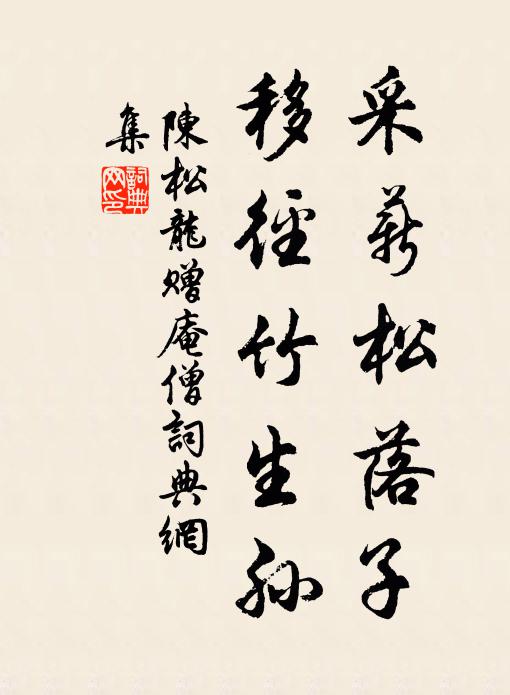 采薪松落子
移徑竹生孙
陳松龍贈庵僧詞典網
集
詞典
网印